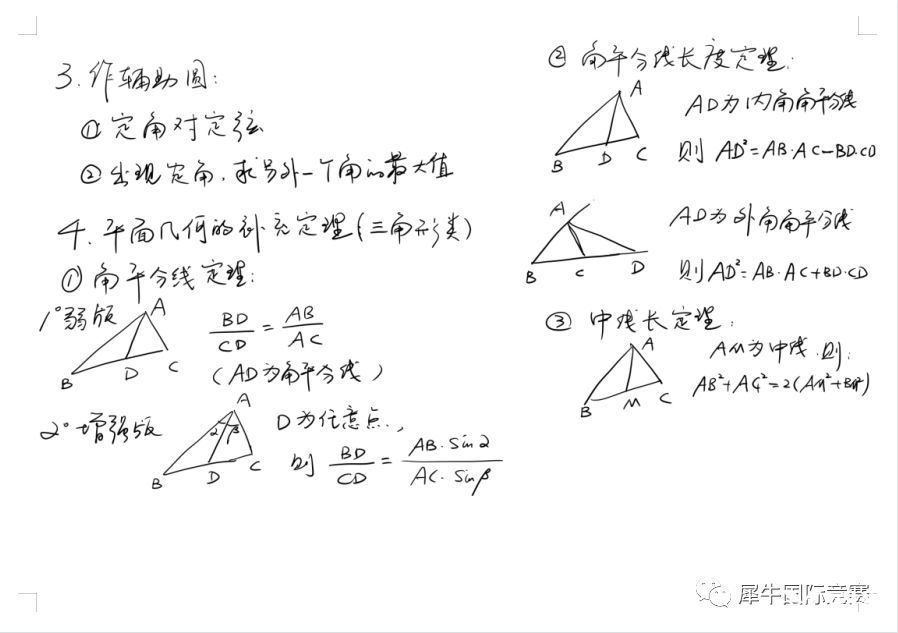 3. 作辅助圆:
① 定角对定弦
② 出现定角, 求另外一个角的最大值
4. 平面几何的补充定理(三角形类)
① 角平分线定理:
1° 弱版
A
B
D
C
BD/CD = AB/AC
(AD为角平分线)
2° 增强版
A
α
β
B
D
C
D为任意点,
则 BD/CD = AB·sinα/AC·sinβ
② 角平分线长度定理:
A
B
D
C
AD为内角角平分线
则 AD²=AB·AC-BD·CD
A
B
C
D
AD为外角角平分线
则 AD²=AB·AC+BD·CD
③ 中线长定理:
A
B
M
C
AM为中线, 则:
AB²+AC²=2(AM²+BM²)
犀牛国际竞赛